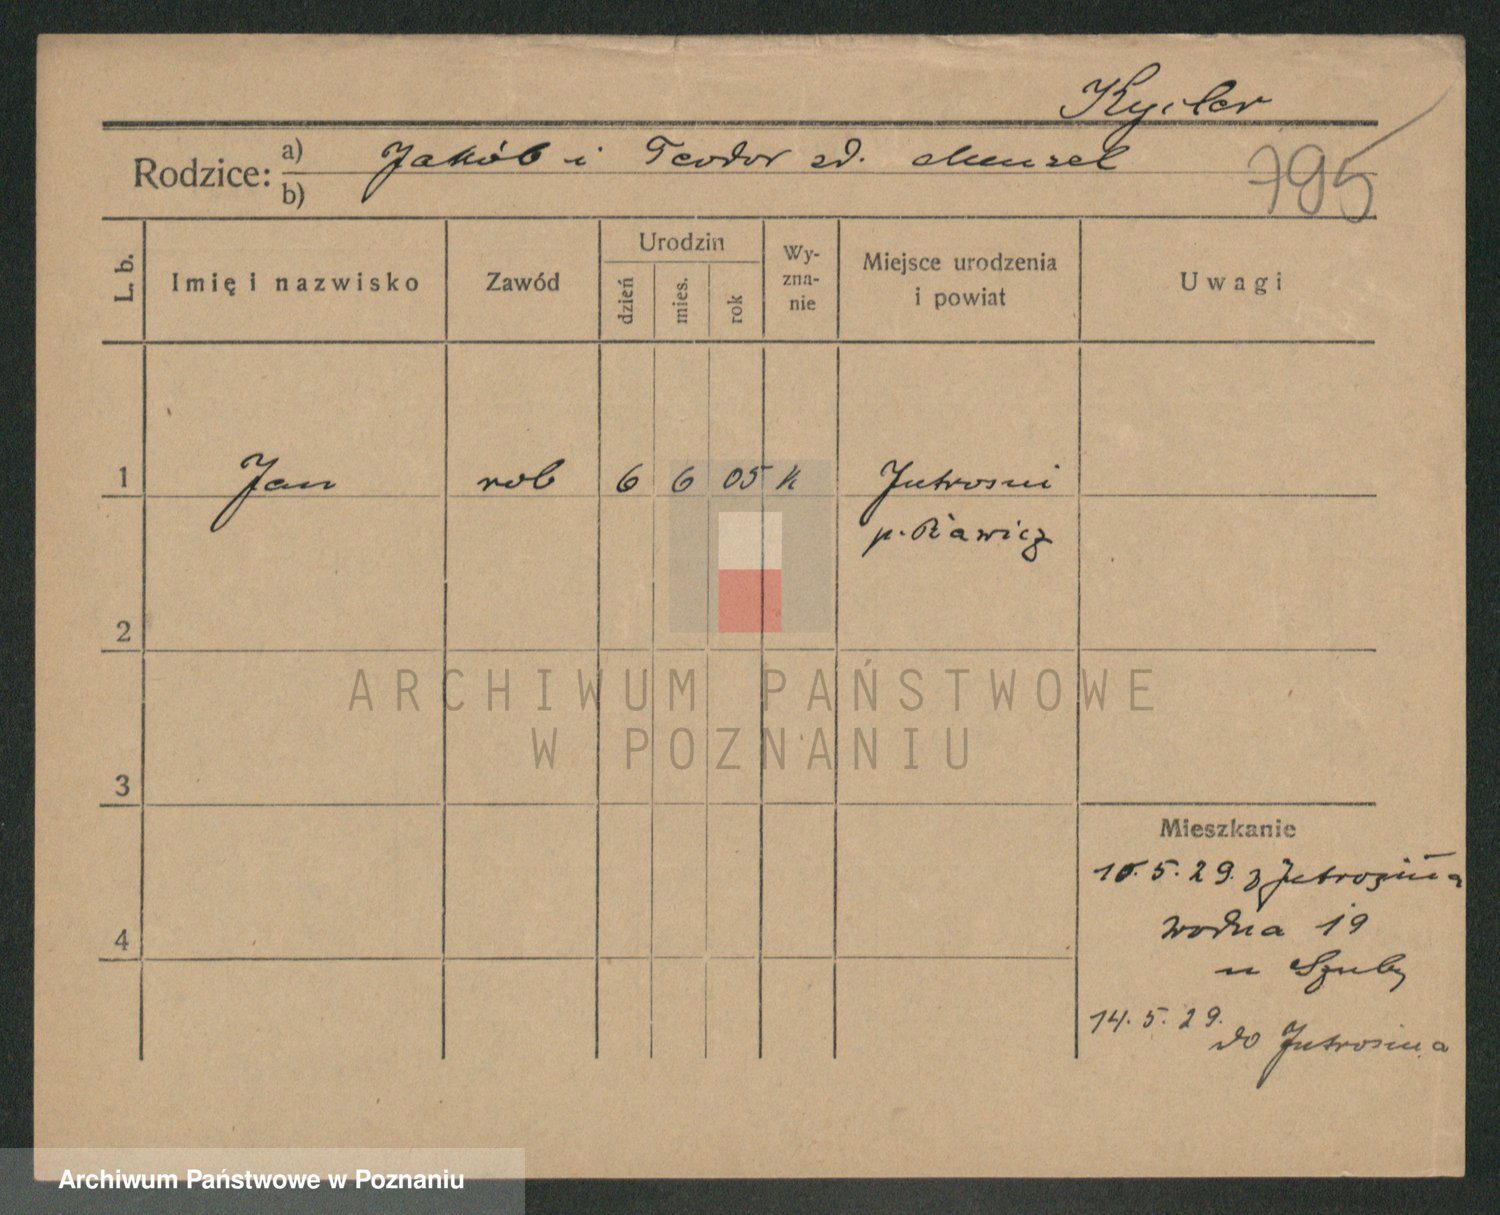 Kyiler
Rodzice: a) Jakób i Teodor zd. Menzel
b)
795
L. b.
Imię i nazwisko
Zawód
Urodzin
dzień
mies.
rok
Wy-
zna-
nie
Miejsce urodzenia
i powiat
Uwagi
1 Jan rob 6 6 05 k Jutrosni
p. Rawicz
2
ARCHIWUM PAŃSTWOWE
W POZNANIU
3
Mieszkanie
10. 5. 29. z Jutrosina
Wodna 19
u Szuby
4
14. 5. 29.
do Jutrosina
Archiwum Państwowe w Poznaniu